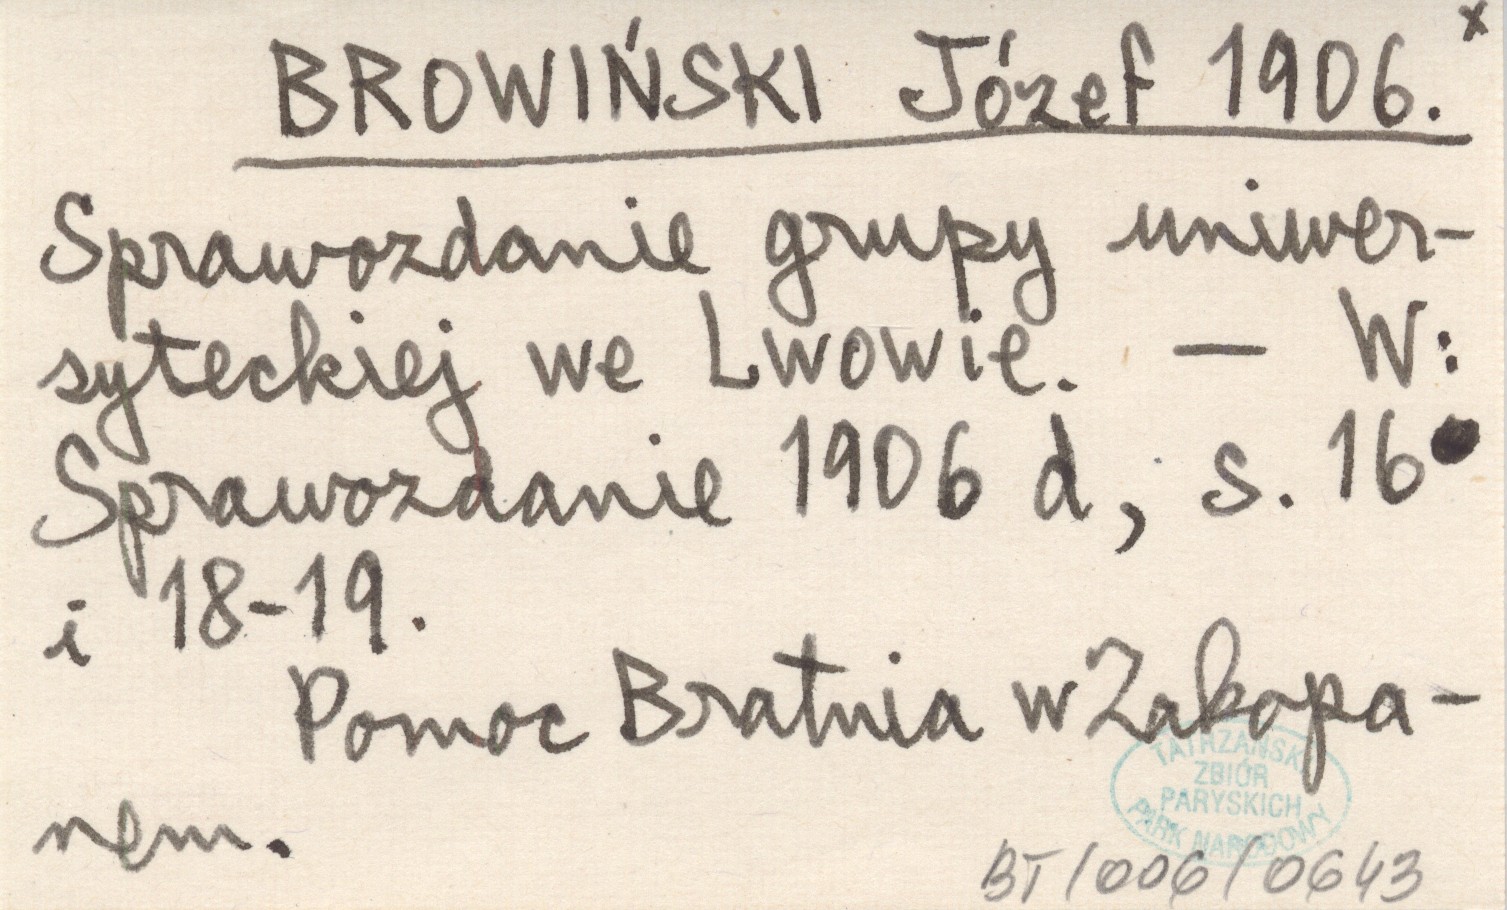 x
BROWIŃSKI Józef 1906.
Sprawozdanie grupy uniwer-
syteckiej we Lwowie. — W:
Sprawozdanie 1906 d, s. 16
i 18-19.
Pomoc Bratnia w Zakopa-
nem.
TATRZAŃSKI
ZBIÓR
PARYSKICH
PARK NARODOWY
BT/006/0643